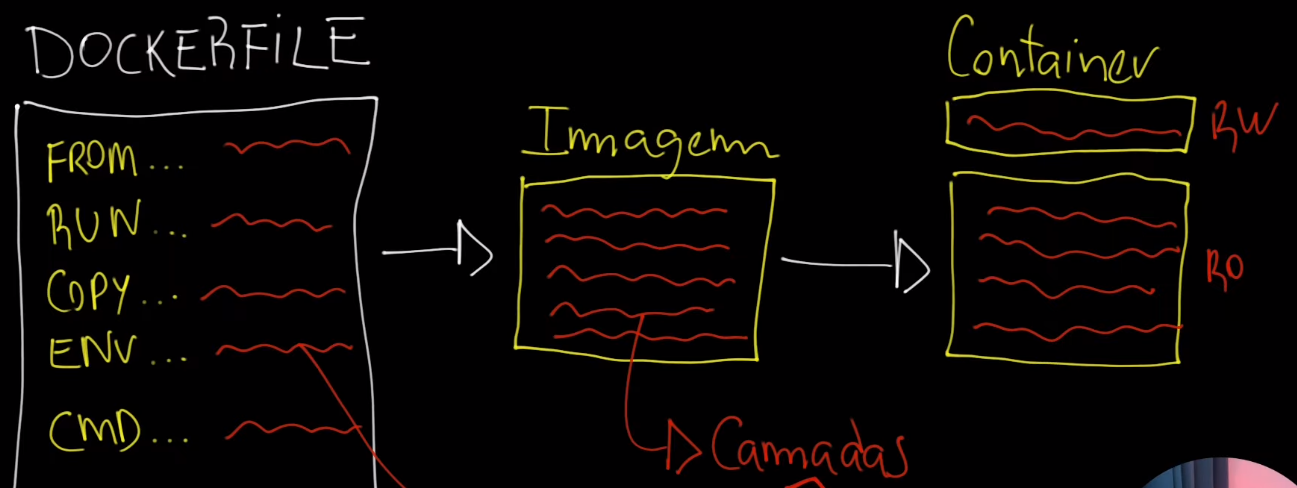 DOCKERFILE
FROM ...
RUN ...
COPY ...
ENV ...
CMD ...
Imagem
Camadas
Container
RW
RO